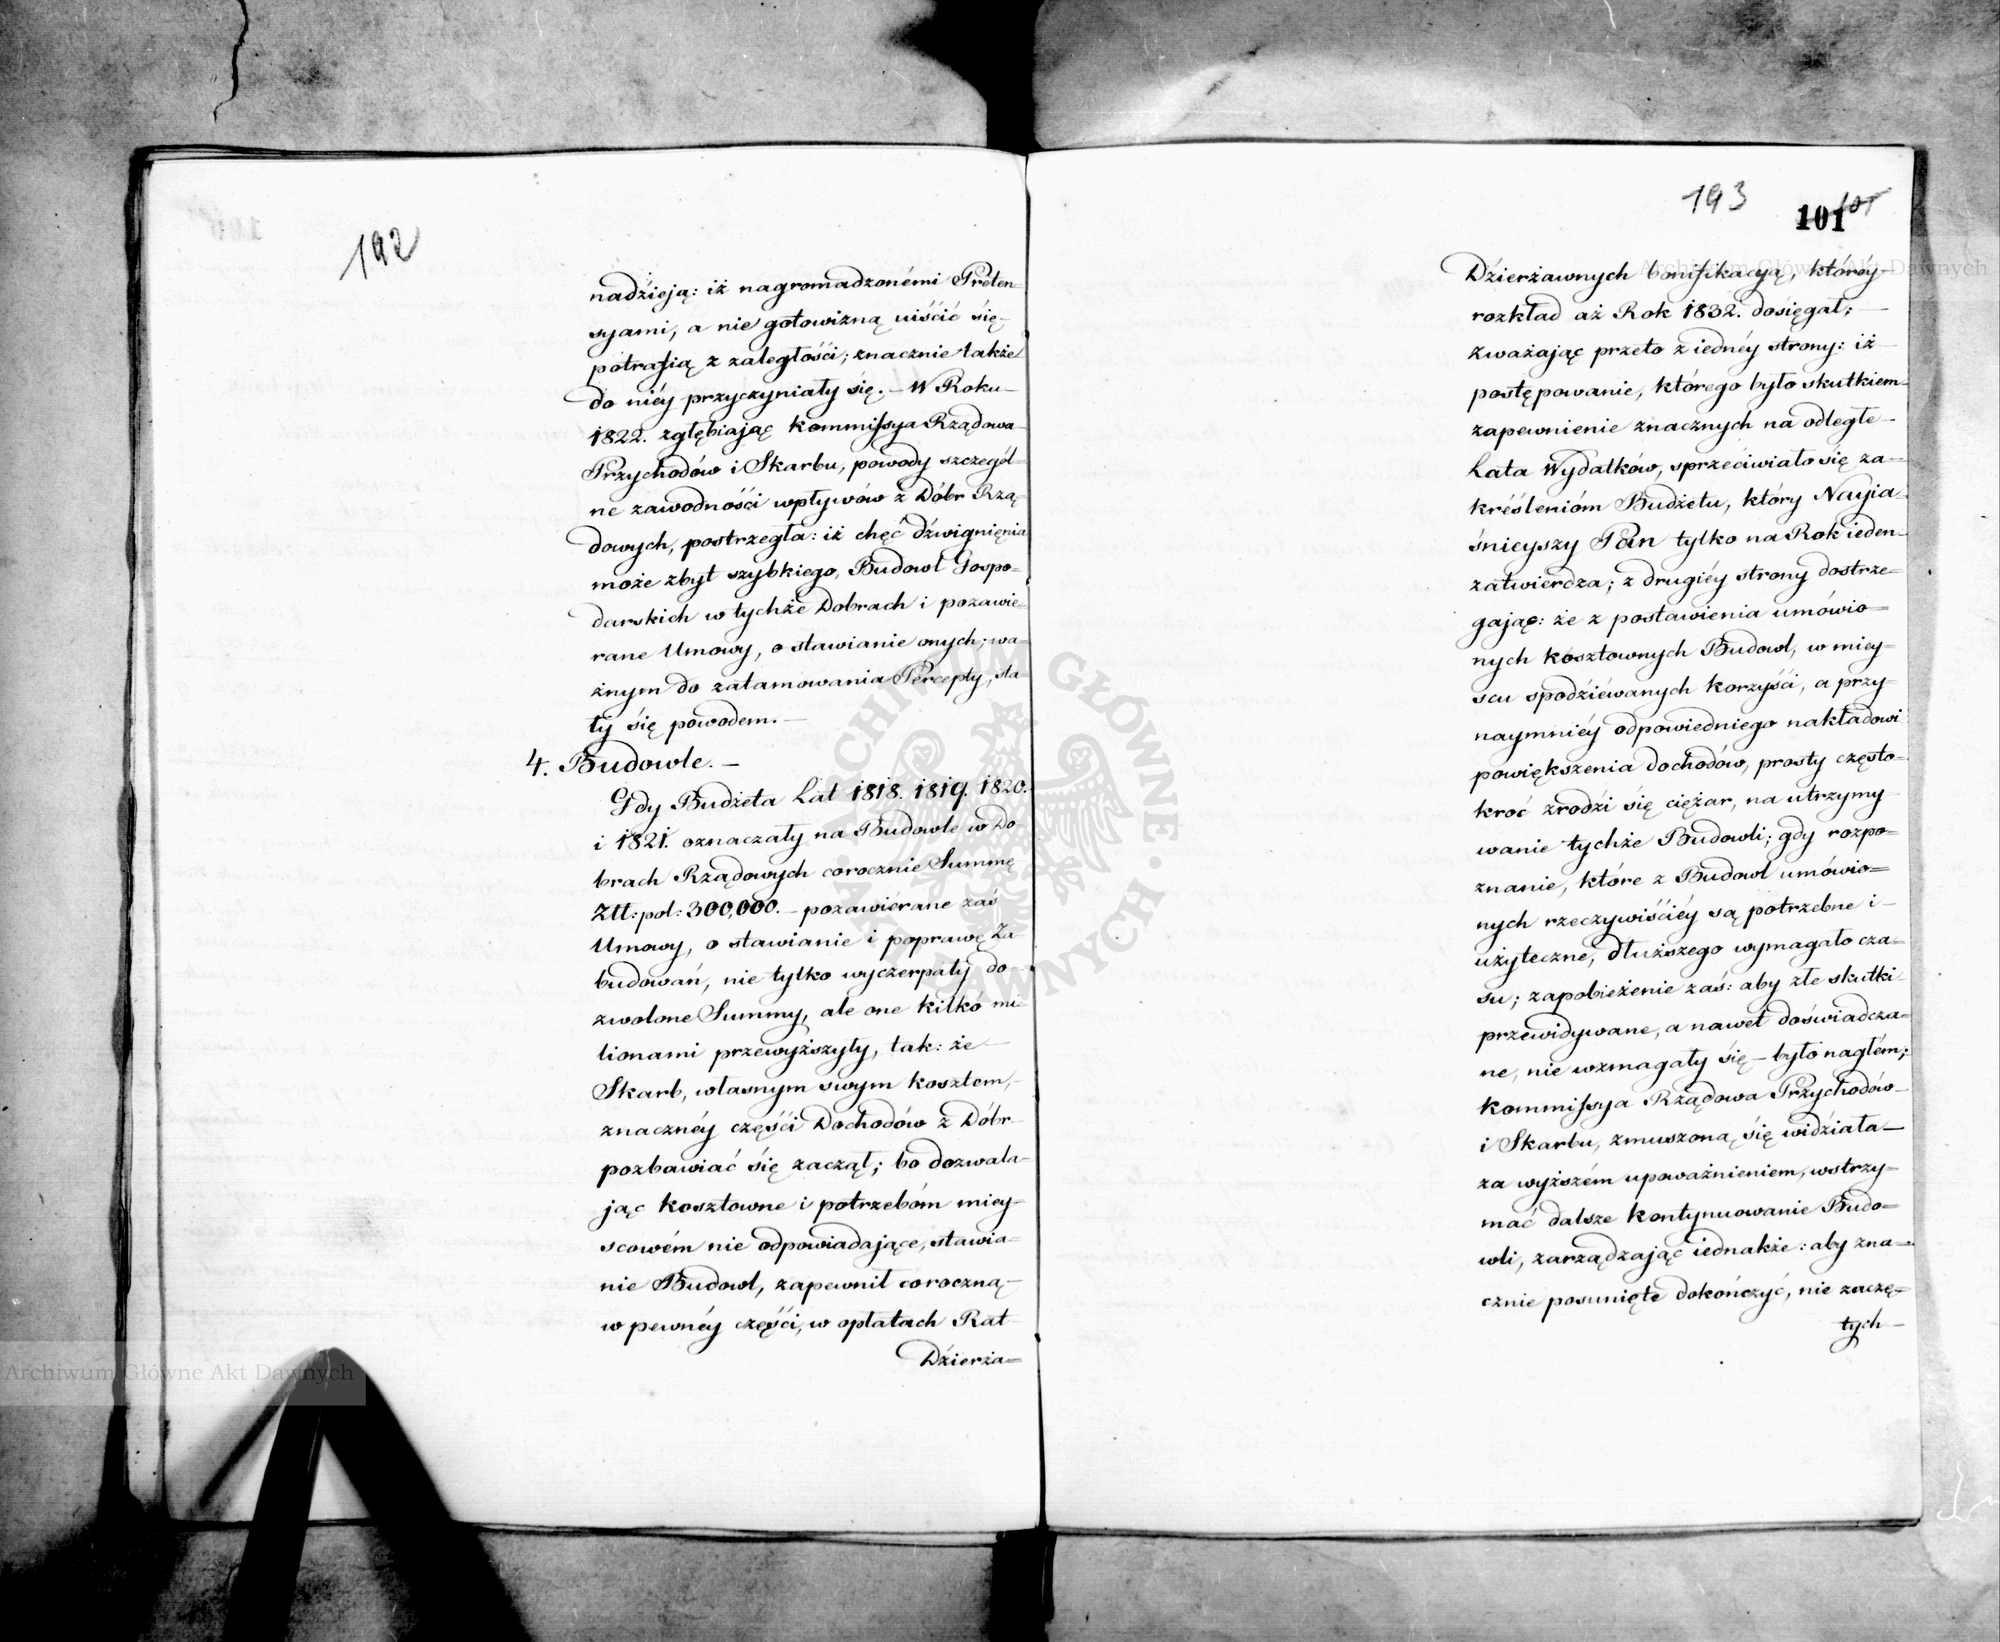 192
nadzieją: iż nagromadzonémi Preten-
syami, a nie gotowizną uiśćić się-
potrafią z zaległośći; znacznie także
do niéy przyczyniały się. – W Roku-
1822. zgłębiając Kommissya Rządowa
Przychodów i Skarbu, powody szczegól-
ne zawodnośći wpływów z Dóbr Rzą-
dowych, postrzegła: iż chęć dźwignięnia
może zbyt szybkiego, Budowl Gospo-
darskich w tychże Dobrach i pozawie-
rane Umowy, o stawianie onych; wa-
żnym do zatamowania Percepty, sta-
ły się powodem. –
4. Budowle. –
Gdy Budżeta Lat 1818. 1819. 1820.
i 1821. oznaczały na Budowle w Do
brach Rządowych corocznie Summę
Złł: pol: 300,000. – pozawiérane zaś
Umowy, o stawianie i poprawę Za
budowań, nie tylko wyczerpały do-
zwolone Summy, ale one kilkó mi-
lionami przewyższyły, tak: że –
Skarb, własnym swym kosztem, –
znacznéy częśći Dochodów z Dóbr-
pozbawiać się zaczął; bo dozwala-
jąc kosztowne i potrzebóm miey-
scowém nie odpowiadające, stawia-
nie Budowl, zapewnił coroczną –
w pewnéy częśći, w opłatach Rat
Dzierża=
193
101
101
Dzierżawnych bonifikacyą, któréy –
rozkład aż Rok 1832. dosięgał; –
zważając przeto z iednéy strony: iż –
postępowanie, którego było skutkiem-
zapewnienie znacznych na odległe –
Lata Wydatków, sprzeciwiało się za-
kréślenióm Budżetu, który Nayia-
śnieyszy Pan tylko na Rok ieden-
zatwierdza; z drugiéy strony dostrze=
gając: że z postawienia umówio=
nych kosztownych Budowl, w miey-
scu spodziéwanych korzyśći, a przy-
naymniéy odpowiedniego nakładowi
powiększenia dochodów, prosty często-
kroć zrodzi się ciężar, na utrzymy
wanie tychże Budowli; gdy rozpo=
znanie, które z Budowl umówio=
nych rzeczywiśćiéy są potrzebne i –
użyteczne, dłuższego wymagało cza=
su; zapobieżenie zaś: aby złe skutki-
przewidywane, a nawet doświadcza=
ne, nie wzmagały się – było nagłém;
Kommissya Rządowa Przychodów –
i Skarbu, zmuszoną się widziała –
za wyższém upoważnieniem, wstrzy=
mać dalsze kontynuowanie Budo=
wli, zarządzając iednakże: aby zna=
cznie posunięte dokończyć, nie zaczę=
tych –
Archiwum Główne Akt Dawnych
Archiwum Główne Akt Dawnych
ARCHIWUM GŁÓWNE AKT DAWNYCH